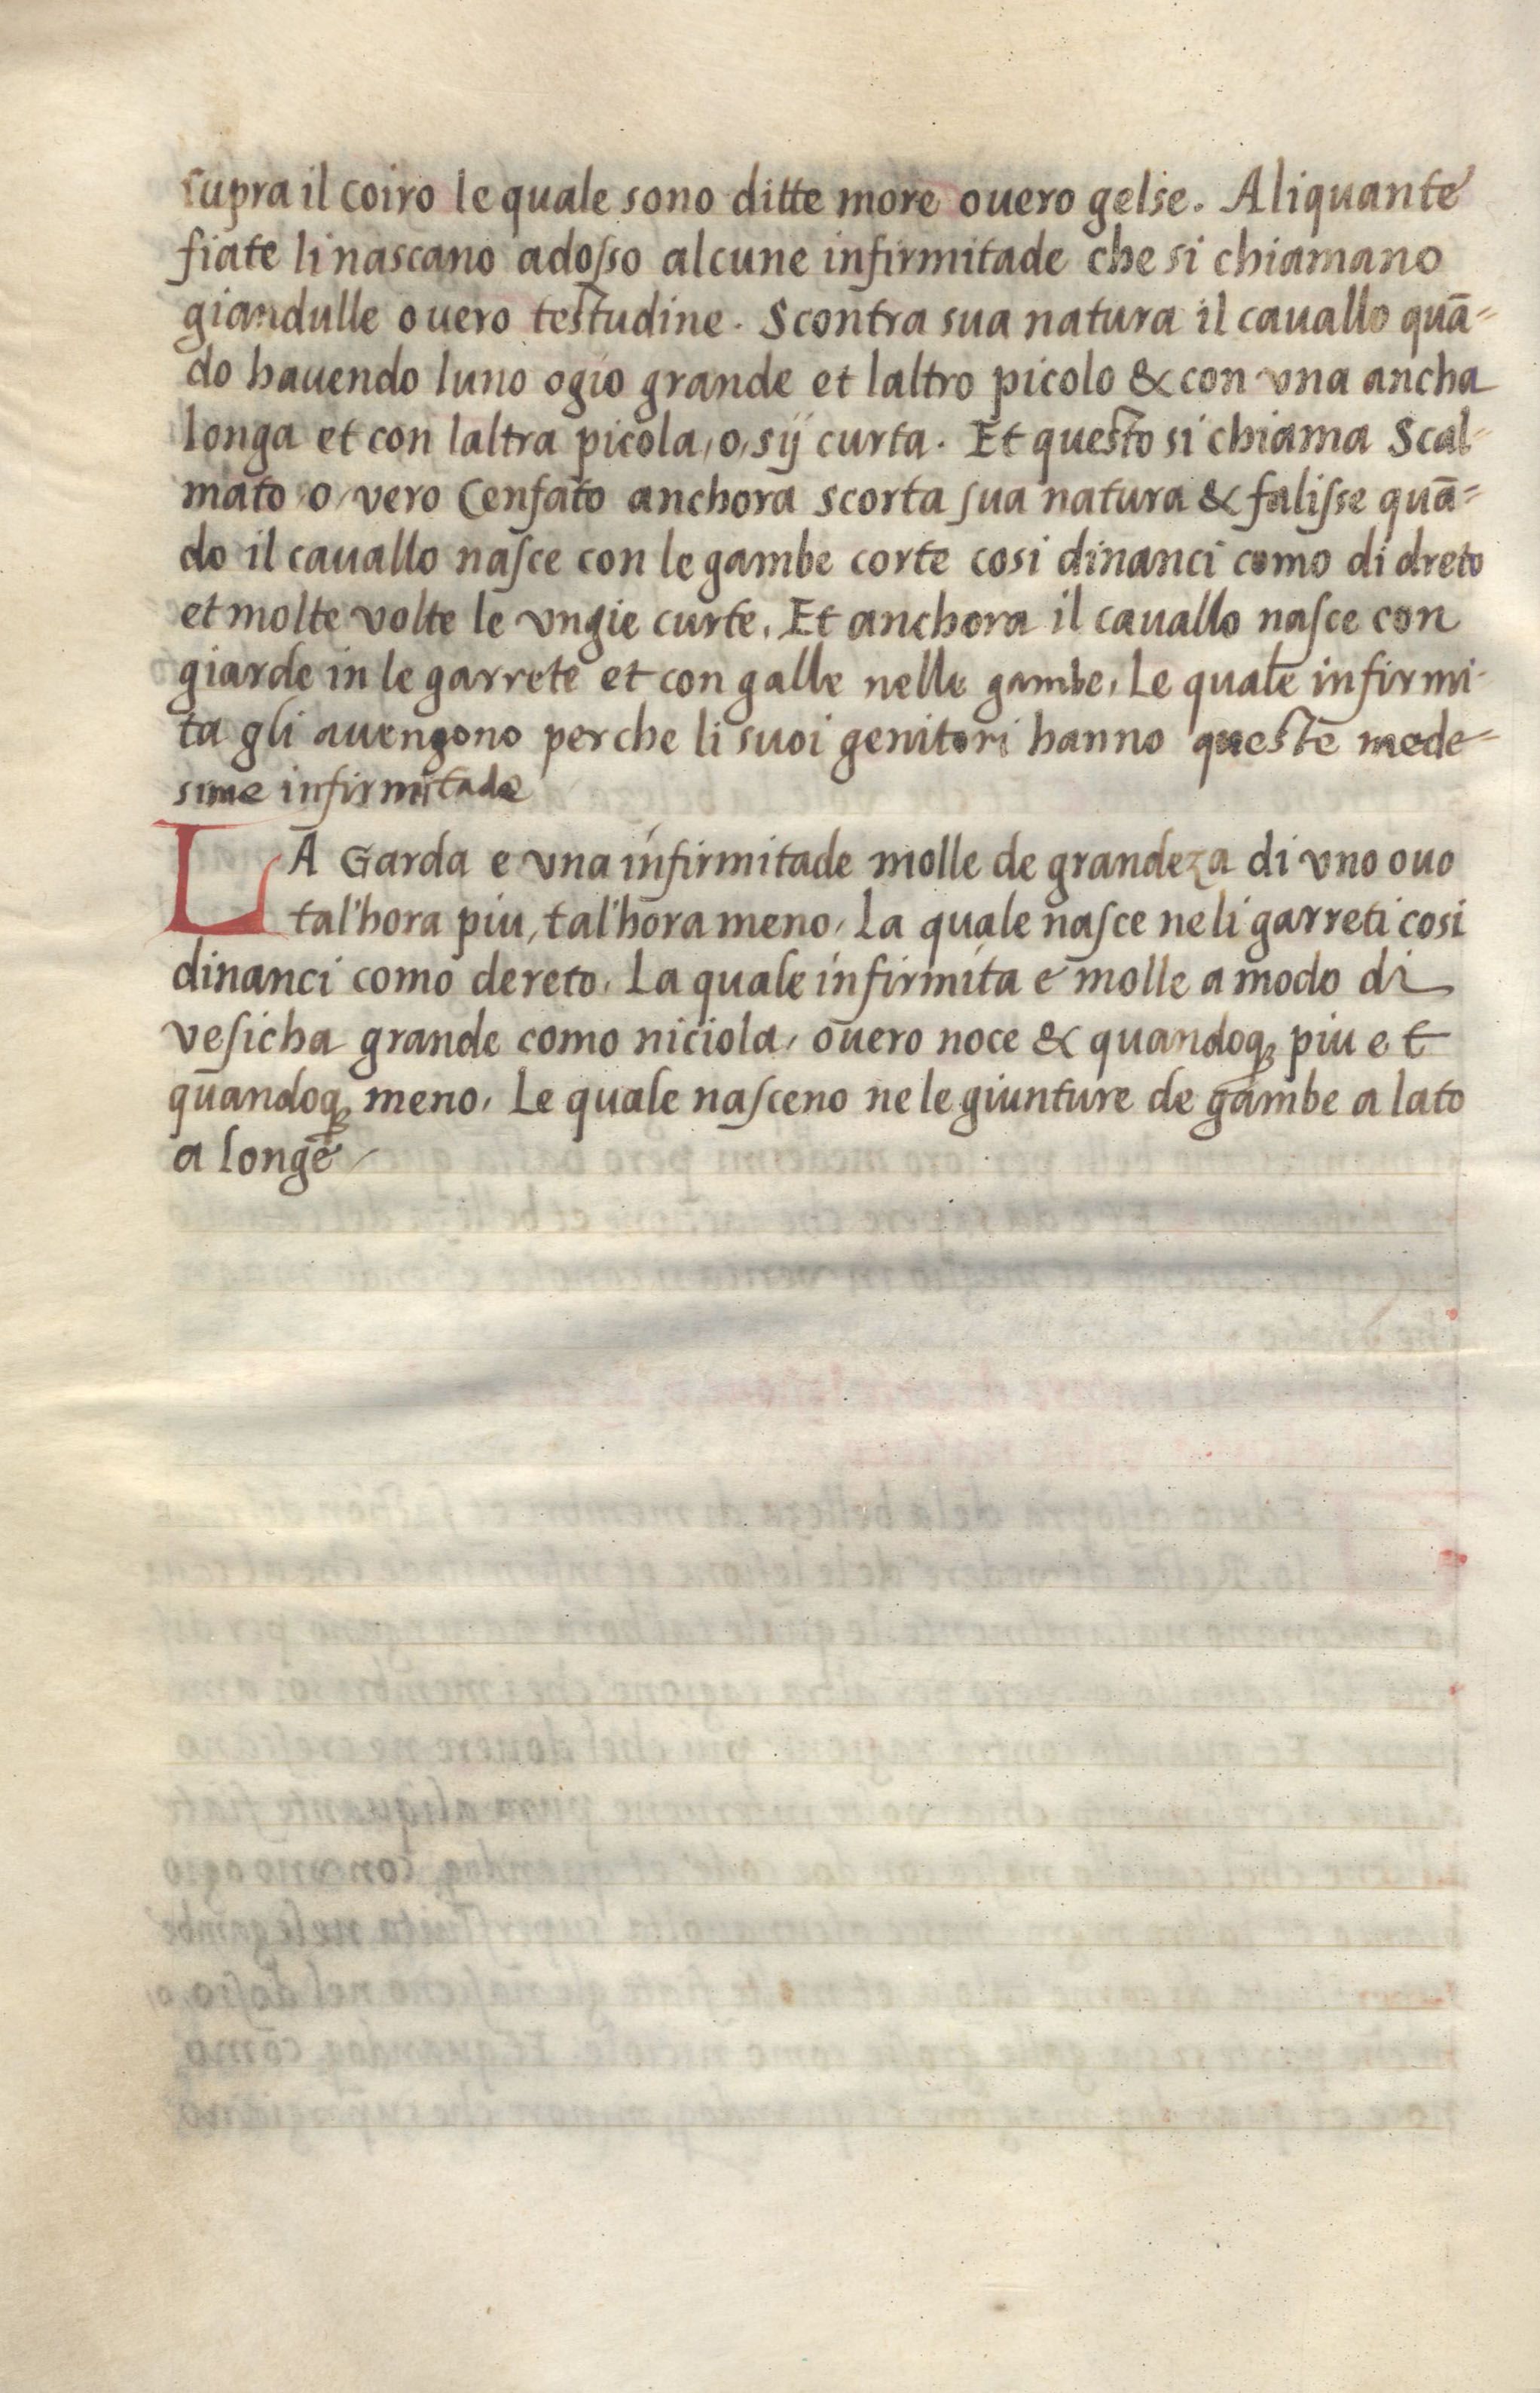 supra il coiro le quale sono ditte more ouero gelse. Aliquante
fiate li nascano adosso alcune infirmitade che si chiamano
giandulle ouero testudine. Scontra sua natura il cauallo quā=
do hauendo luno ogio grande et laltro picolo & con vna ancha
longa et con laltra picola, o, sij curta. Et questo si chiama Scal-
mato o vero Censato anchora scorta sua natura & falisse quā=
do il cauallo nasce con le gambe corte cosi dinanci como di dreto
et molte volte le vngie curte. Et anchora il cauallo nasce con
giarde in le garrete et con galle nelle gambe, Le quale infirmi-
ta gli auengono perche li suoi genitori hanno queste mede=
sime infirmitade
LA Garda e vna infirmitade molle de grandeza di vno ouo
tal'hora piu, tal'hora meno, La quale nasce ne li garreti cosi
dinanci como dereto, La quale infirmita e molle a modo di
vesicha grande como niciola, ouero noce & quandoq; piu et
quandoq; meno, Le quale nasceno ne le giunture de gambe a lato
a longe